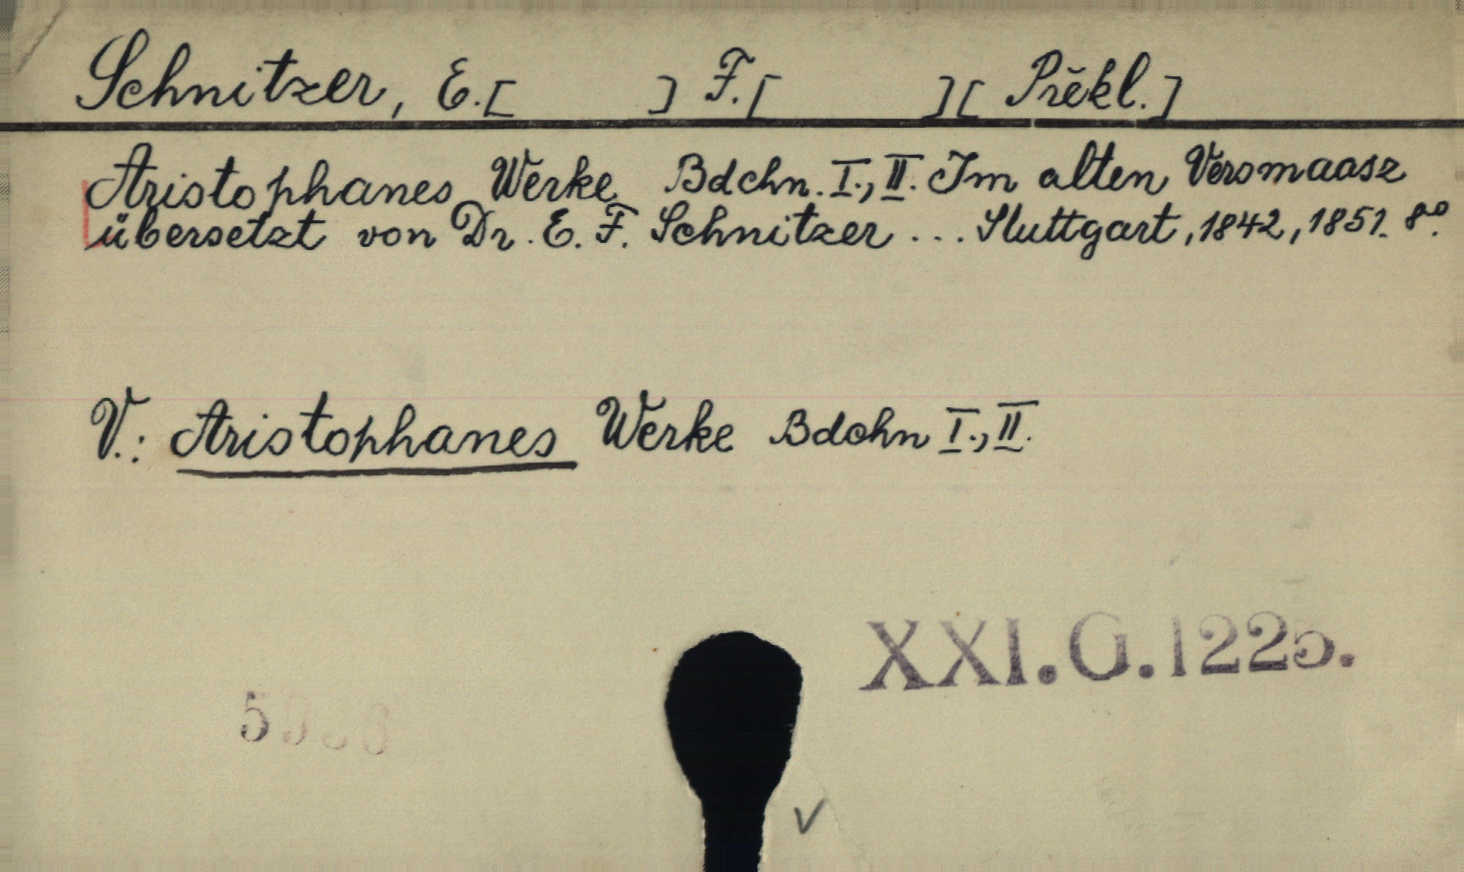 Schnitzer, E.[ ] F.[ ][ Překl.]
Aristophanes Werke Bdchn. I., II. Im alten Versmaasz
übersetzt von Dr. E. F. Schnitzer ... Stuttgart, 1842, 1851. 8º.
V.: Aristophanes Werke Bdchn I., II.
XXI.G.1225.